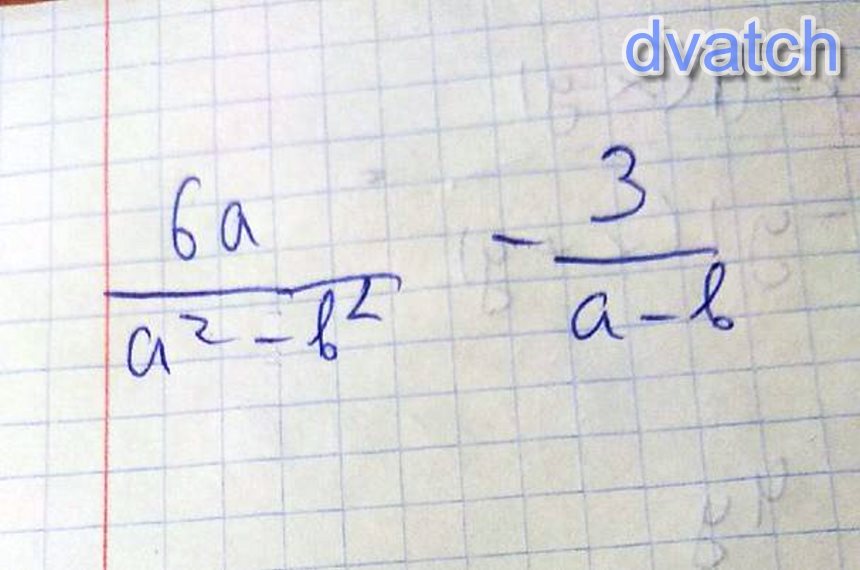 dvatch
6a / a² - b² - 3 / a - b